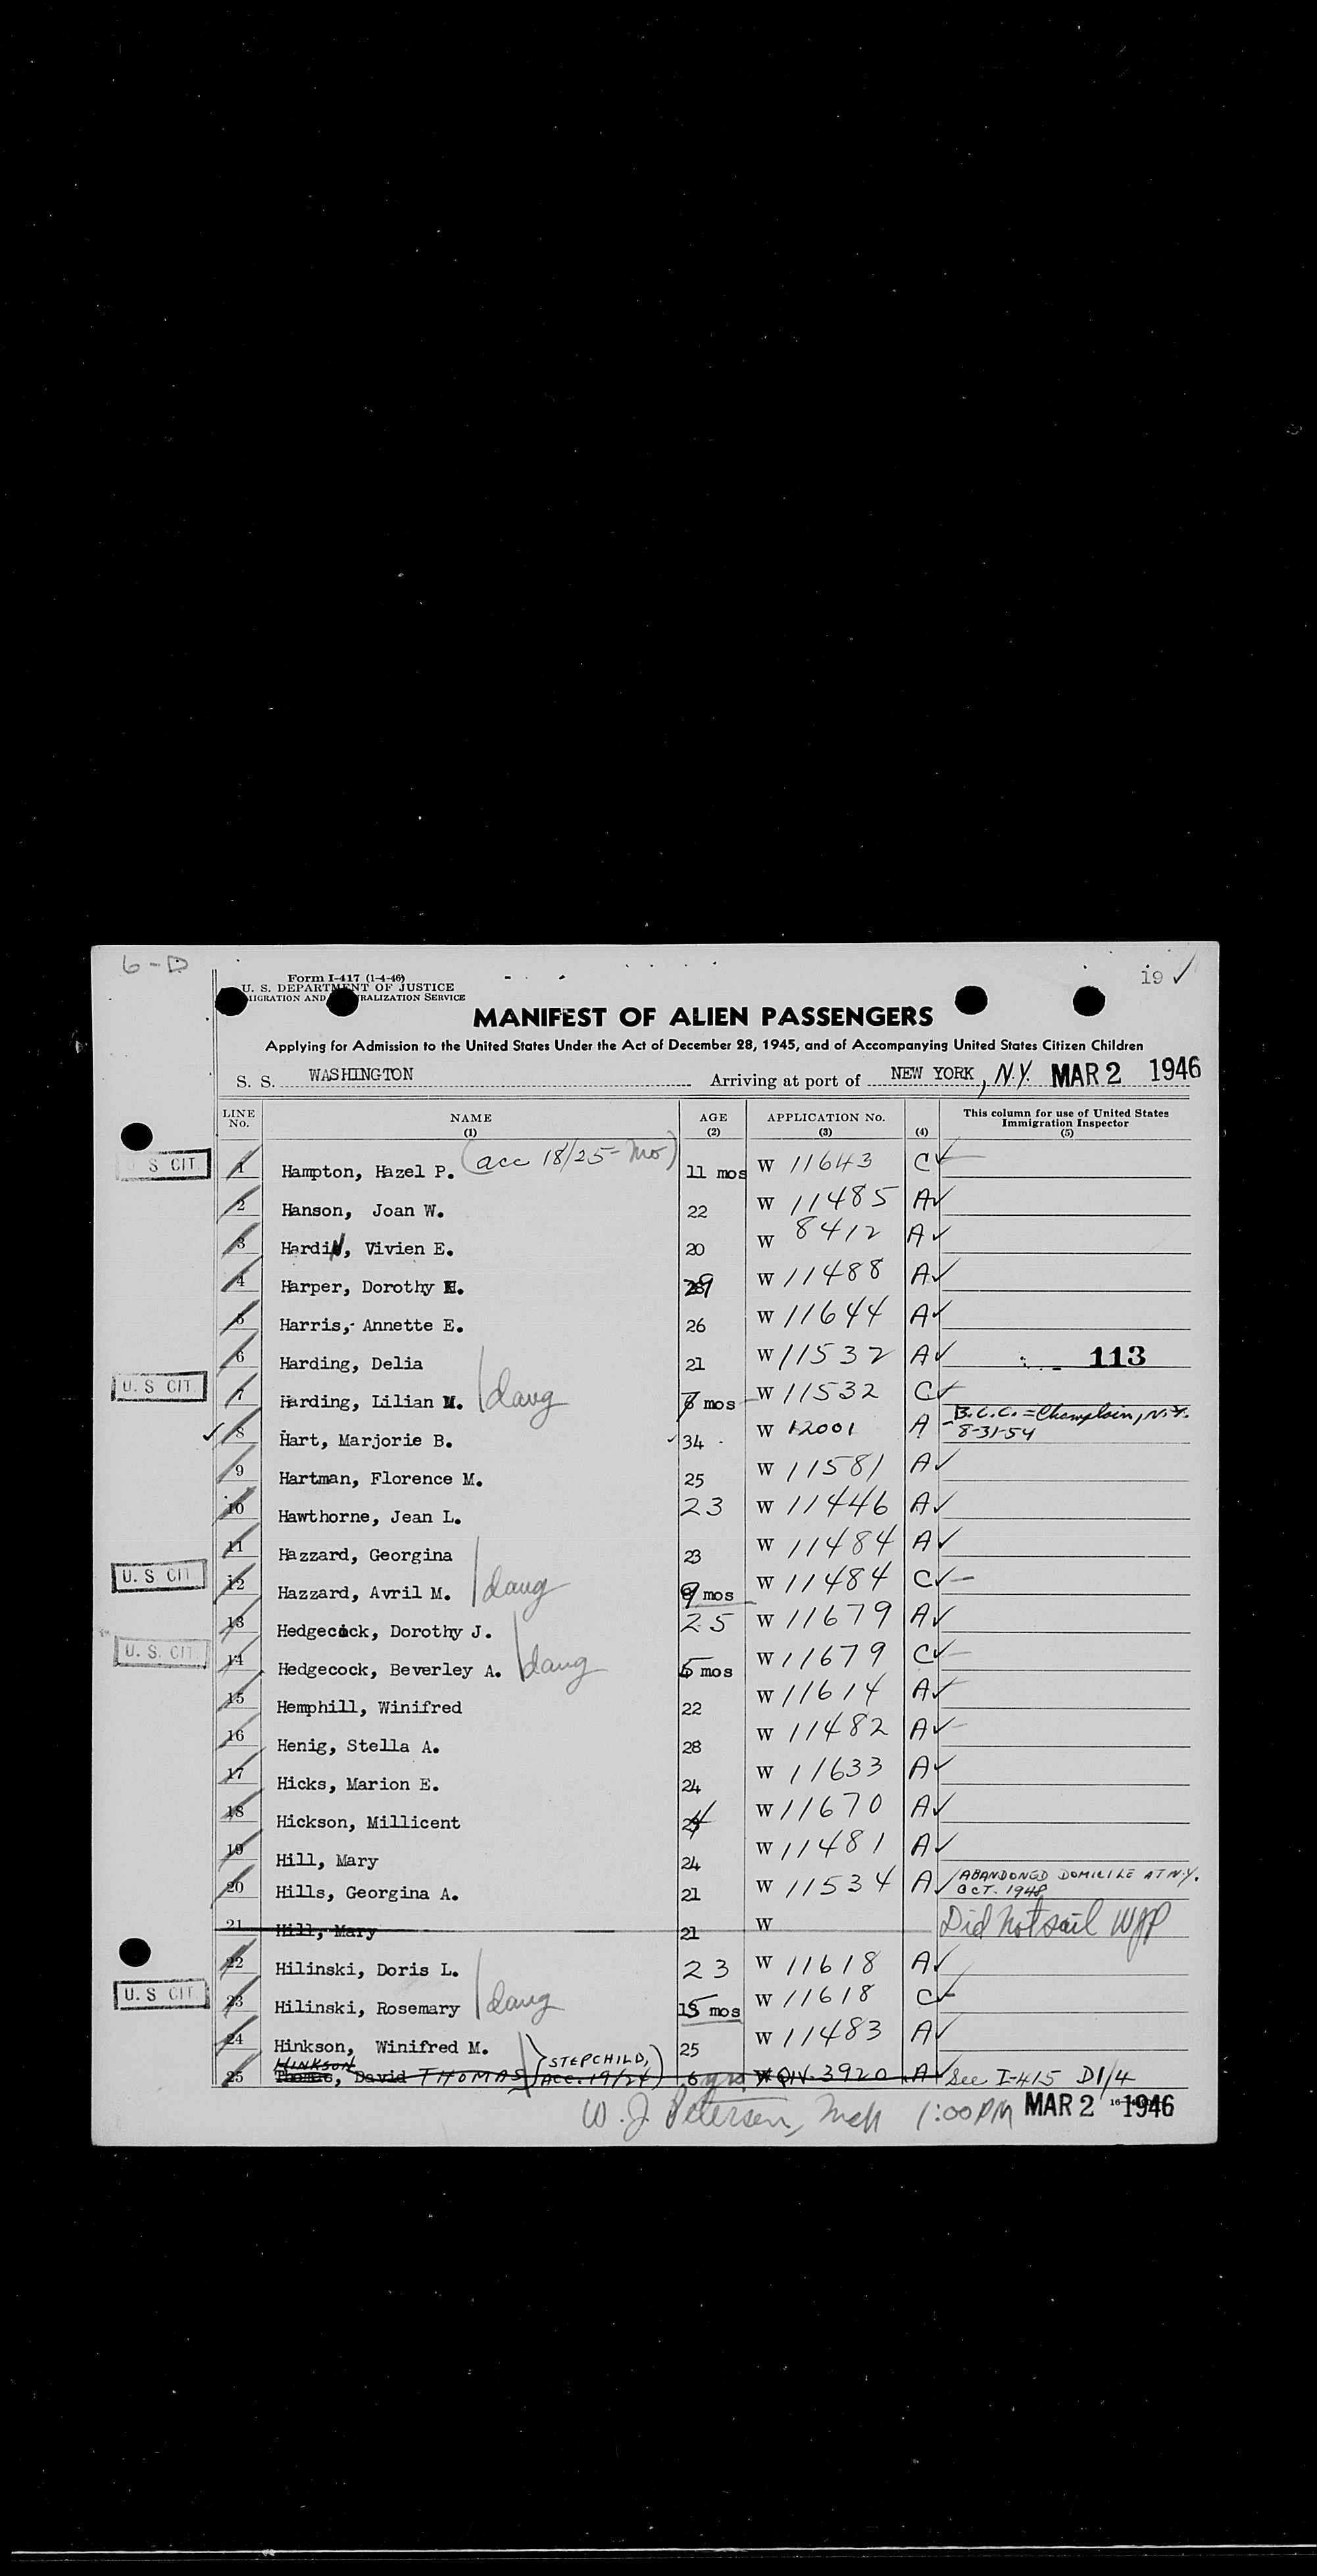 6-D
19 ✓
Form I-417 (1-4-46)
U. S. DEPARTMENT OF JUSTICE
IGRATION AND RALIZATION SERVICE
MANIFEST OF ALIEN PASSENGERS
Applying for Admission to the United States Under the Act of December 28, 1945, and of Accompanying United States Citizen Children
S. S. WASHINGTON Arriving at port of NEW YORK, N.Y. MAR 2 1946
LINE No. NAME (1) AGE (2) APPLICATION No. (3) (4) This column for use of United States Immigration Inspector (5)
S CIT. 1 Hampton, Hazel P. (acc 18/25-Mo) 11 mos W 11643 C✓
2 Hanson, Joan W. 22 W 11485 A✓
3 HardiN, Vivien E. 20 W 8412 A✓
4 Harper, Dorothy H. 29 W 11488 A✓
5 Harris, Annette E. 26 W 11644 A✓
6 Harding, Delia 21 W 11532 A✓ 113
U. S CIT. 7 Harding, Lilian M. daug mos W 11532 C✓
✓ 8 Hart, Marjorie B. ✓34 W 12001 A B.C.C. = Champlain, N.Y. 8-31-54
9 Hartman, Florence M. 25 W 11581 A✓
10 Hawthorne, Jean L. 23 W 11446 A✓
11 Hazzard, Georgina 23 W 11484 A✓
U. S CIT 12 Hazzard, Avril M. daug 9 mos W 11484 C✓
13 Hedgecock, Dorothy J. 25 W 11679 A✓
U. S. CIT. 14 Hedgecock, Beverley A. daug 5 mos W 11679 C✓
15 Hemphill, Winifred 22 W 11614 A✓
16 Henig, Stella A. 28 W 11482 A✓
17 Hicks, Marion E. 24 W 11633 A✓
18 Hickson, Millicent 24 W 11670 A✓
19 Hill, Mary 24 W 11481 A✓
20 Hills, Georgina A. 21 W 11534 A✓ ABANDONED DOMICILE AT N.Y. OCT. 1948
21 Hill, Mary 21 W Did not sail WJP
22 Hilinski, Doris L. 23 W 11618 A✓
U. S CIT 23 Hilinski, Rosemary daug 15 mos W 11618 C✓
24 Hinkson, Winifred M. 25 W 11483 A✓
25 HINKSON Thomas, David THOMAS (STEPCHILD, ACC. 19/24) 6 yrs W QIV-3920 A✓ See I-415 D1/4
W. J. Petersen, 1:00 PM MAR 2 1946